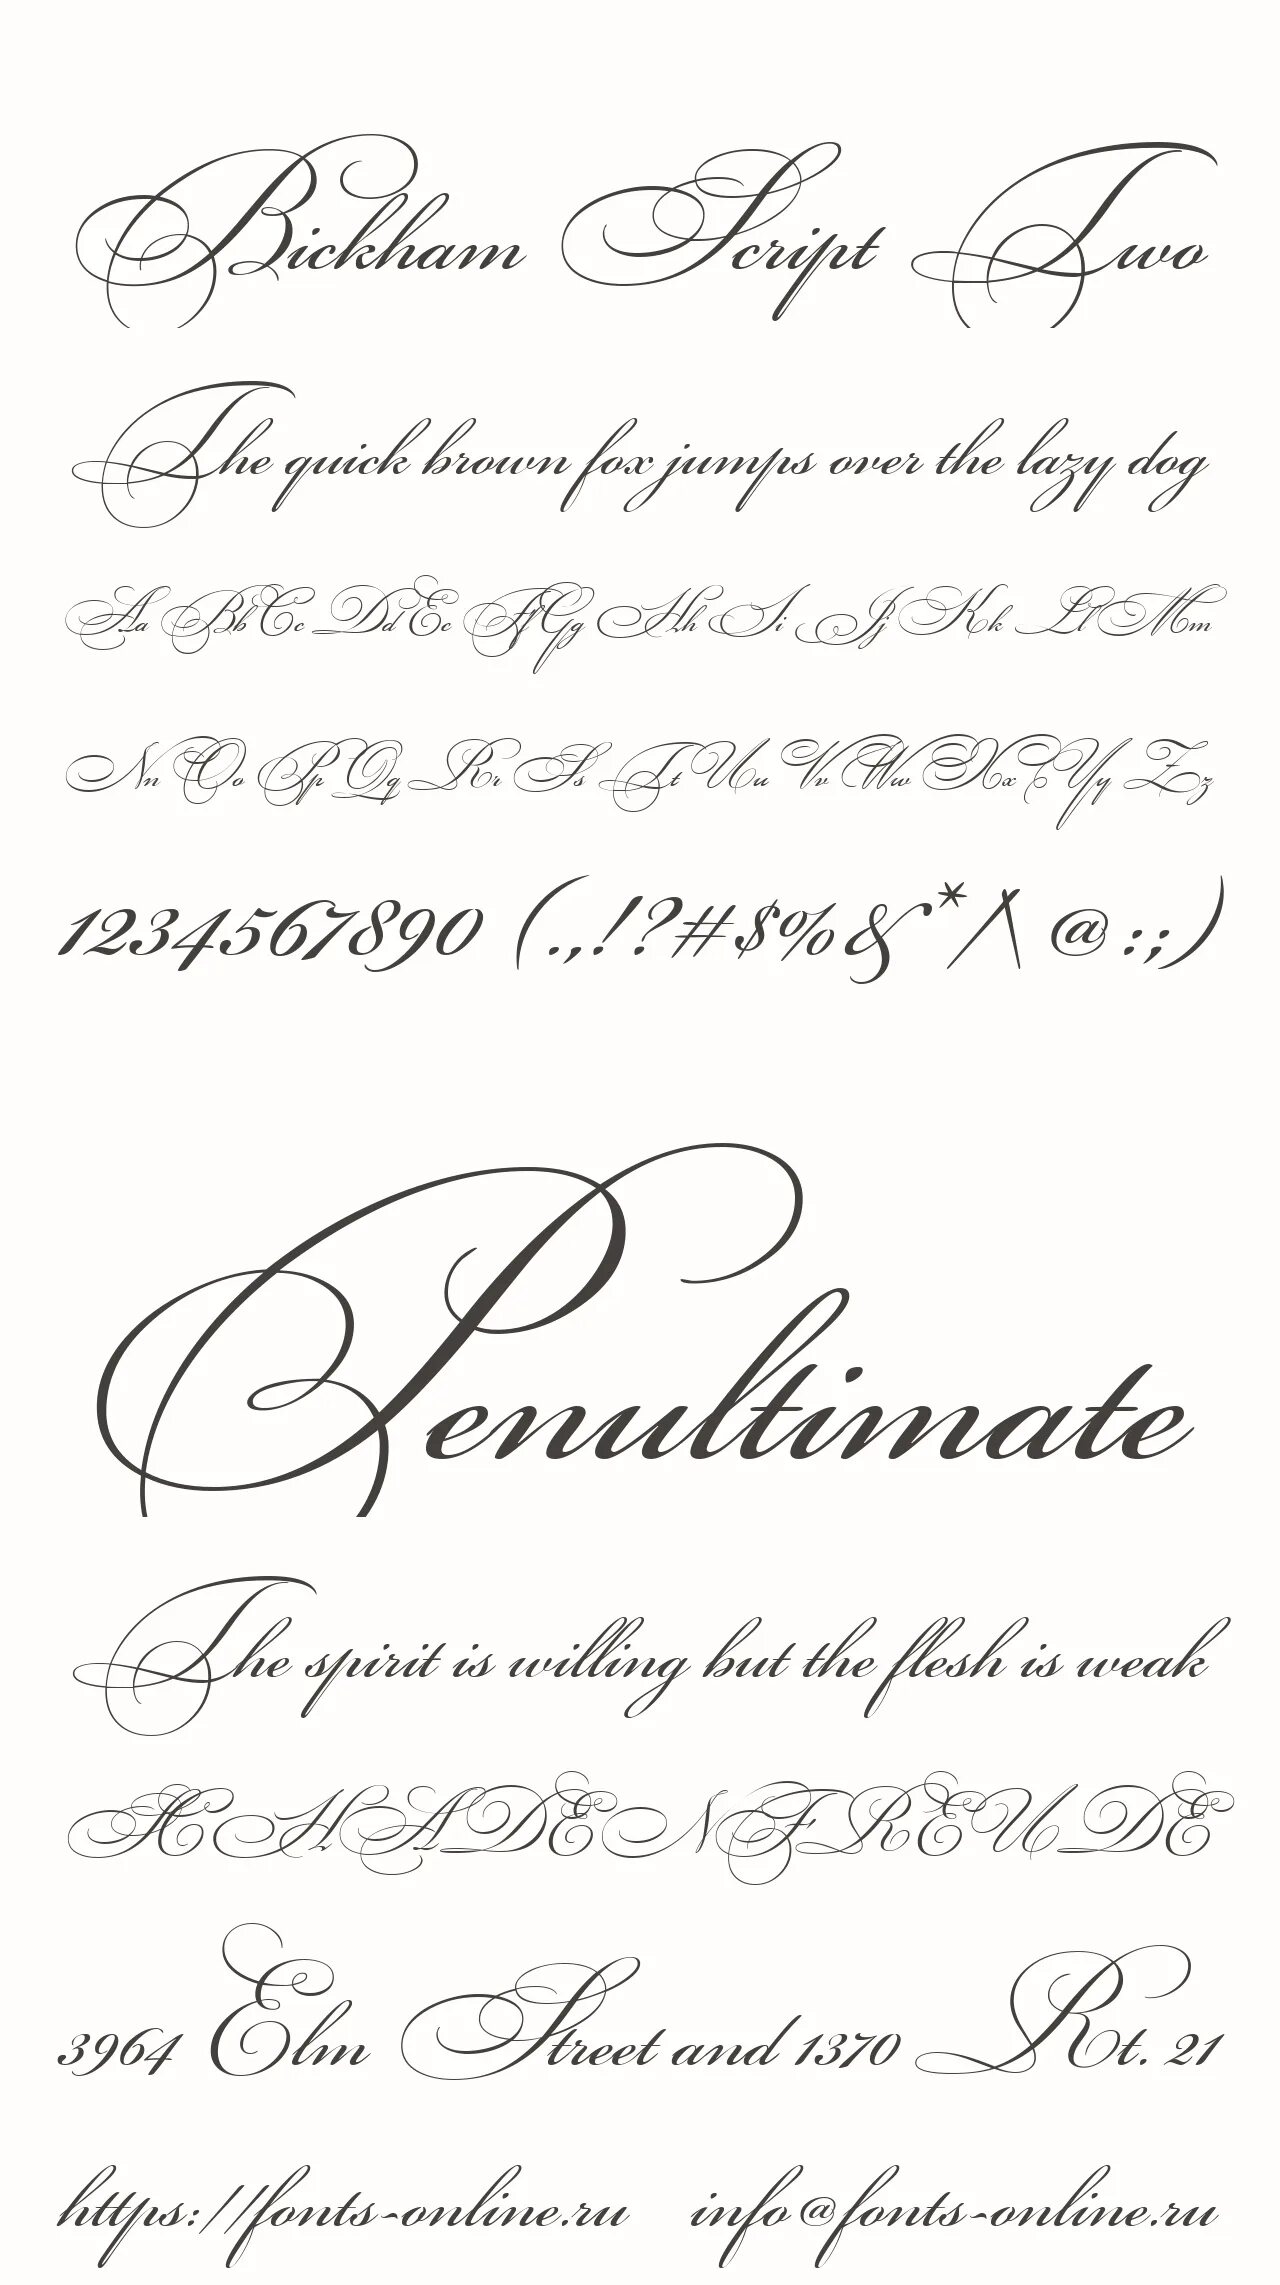 Bickham Script Two
The quick brown fox jumps over the lazy dog
Aa Bb Cc Dd Ee Ff Gg Hh Ii Jj Kk Ll Mm
Nn Oo Pp Qq Rr Ss Tt Uu Vv Ww Xx Yy Zz
1234567890 (.,!?#$%&*/\ @:;)
Penultimate
The spirit is willing but the flesh is weak
XHADENFREUDE
3964 Elm Street and 1370 Rt. 21
https://fonts-online.ru info@fonts-online.ru